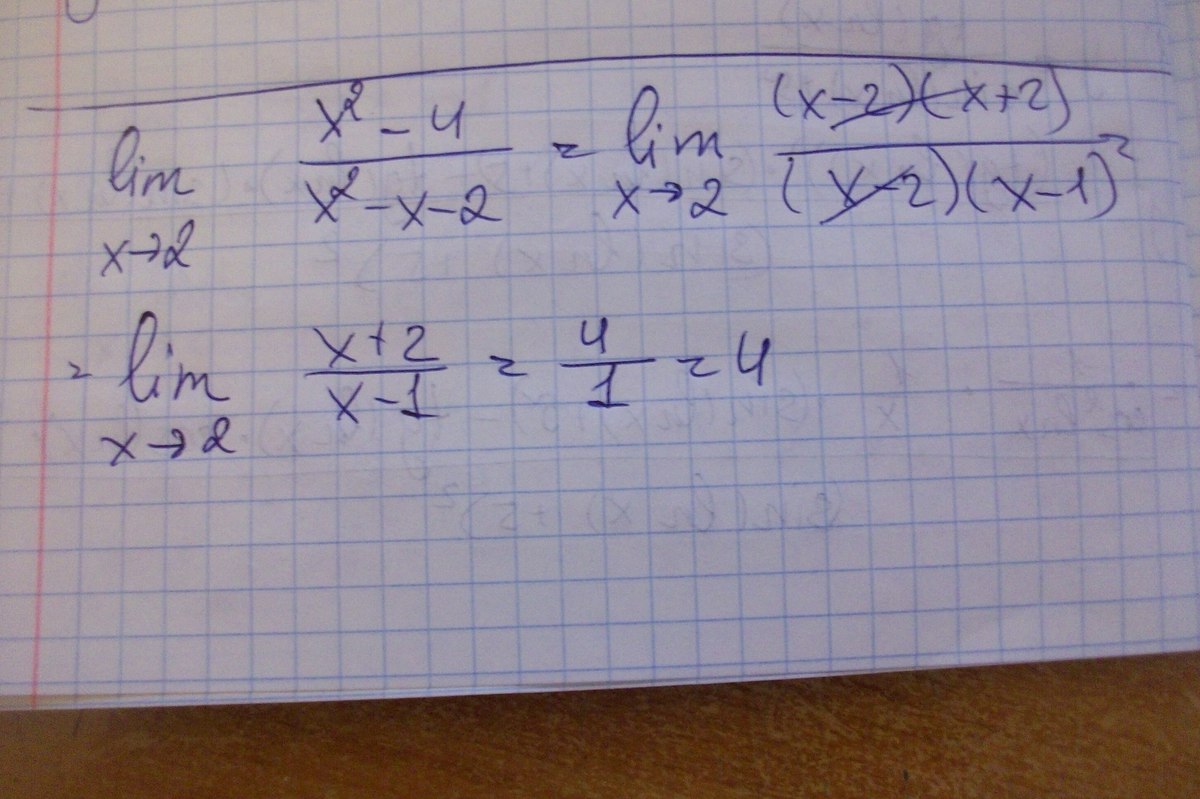 lim x→2 (x² - 4)/(x² - x - 2) = lim x→2 ((x-2)(x+2))/((x-2)(x-1)) =
= lim x→2 (x+2)/(x-1) = 4/1 = 4